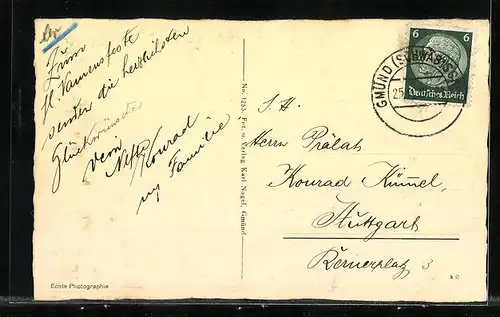 Br
Zum
hl. Namensfeste
senden die herzlichsten
Glückwünsche
Neffe Konrad
u. Familie
No. 1253 Fot. u. Verlag Karl Nagel, Gmünd
Echte Photographie
6 6
Deutsches Reich
GMÜND (SCHWÄB)
25.
S. H.
Herrn Prälat
Konrad Kümmel,
Stuttgart
Bernerplatz 3